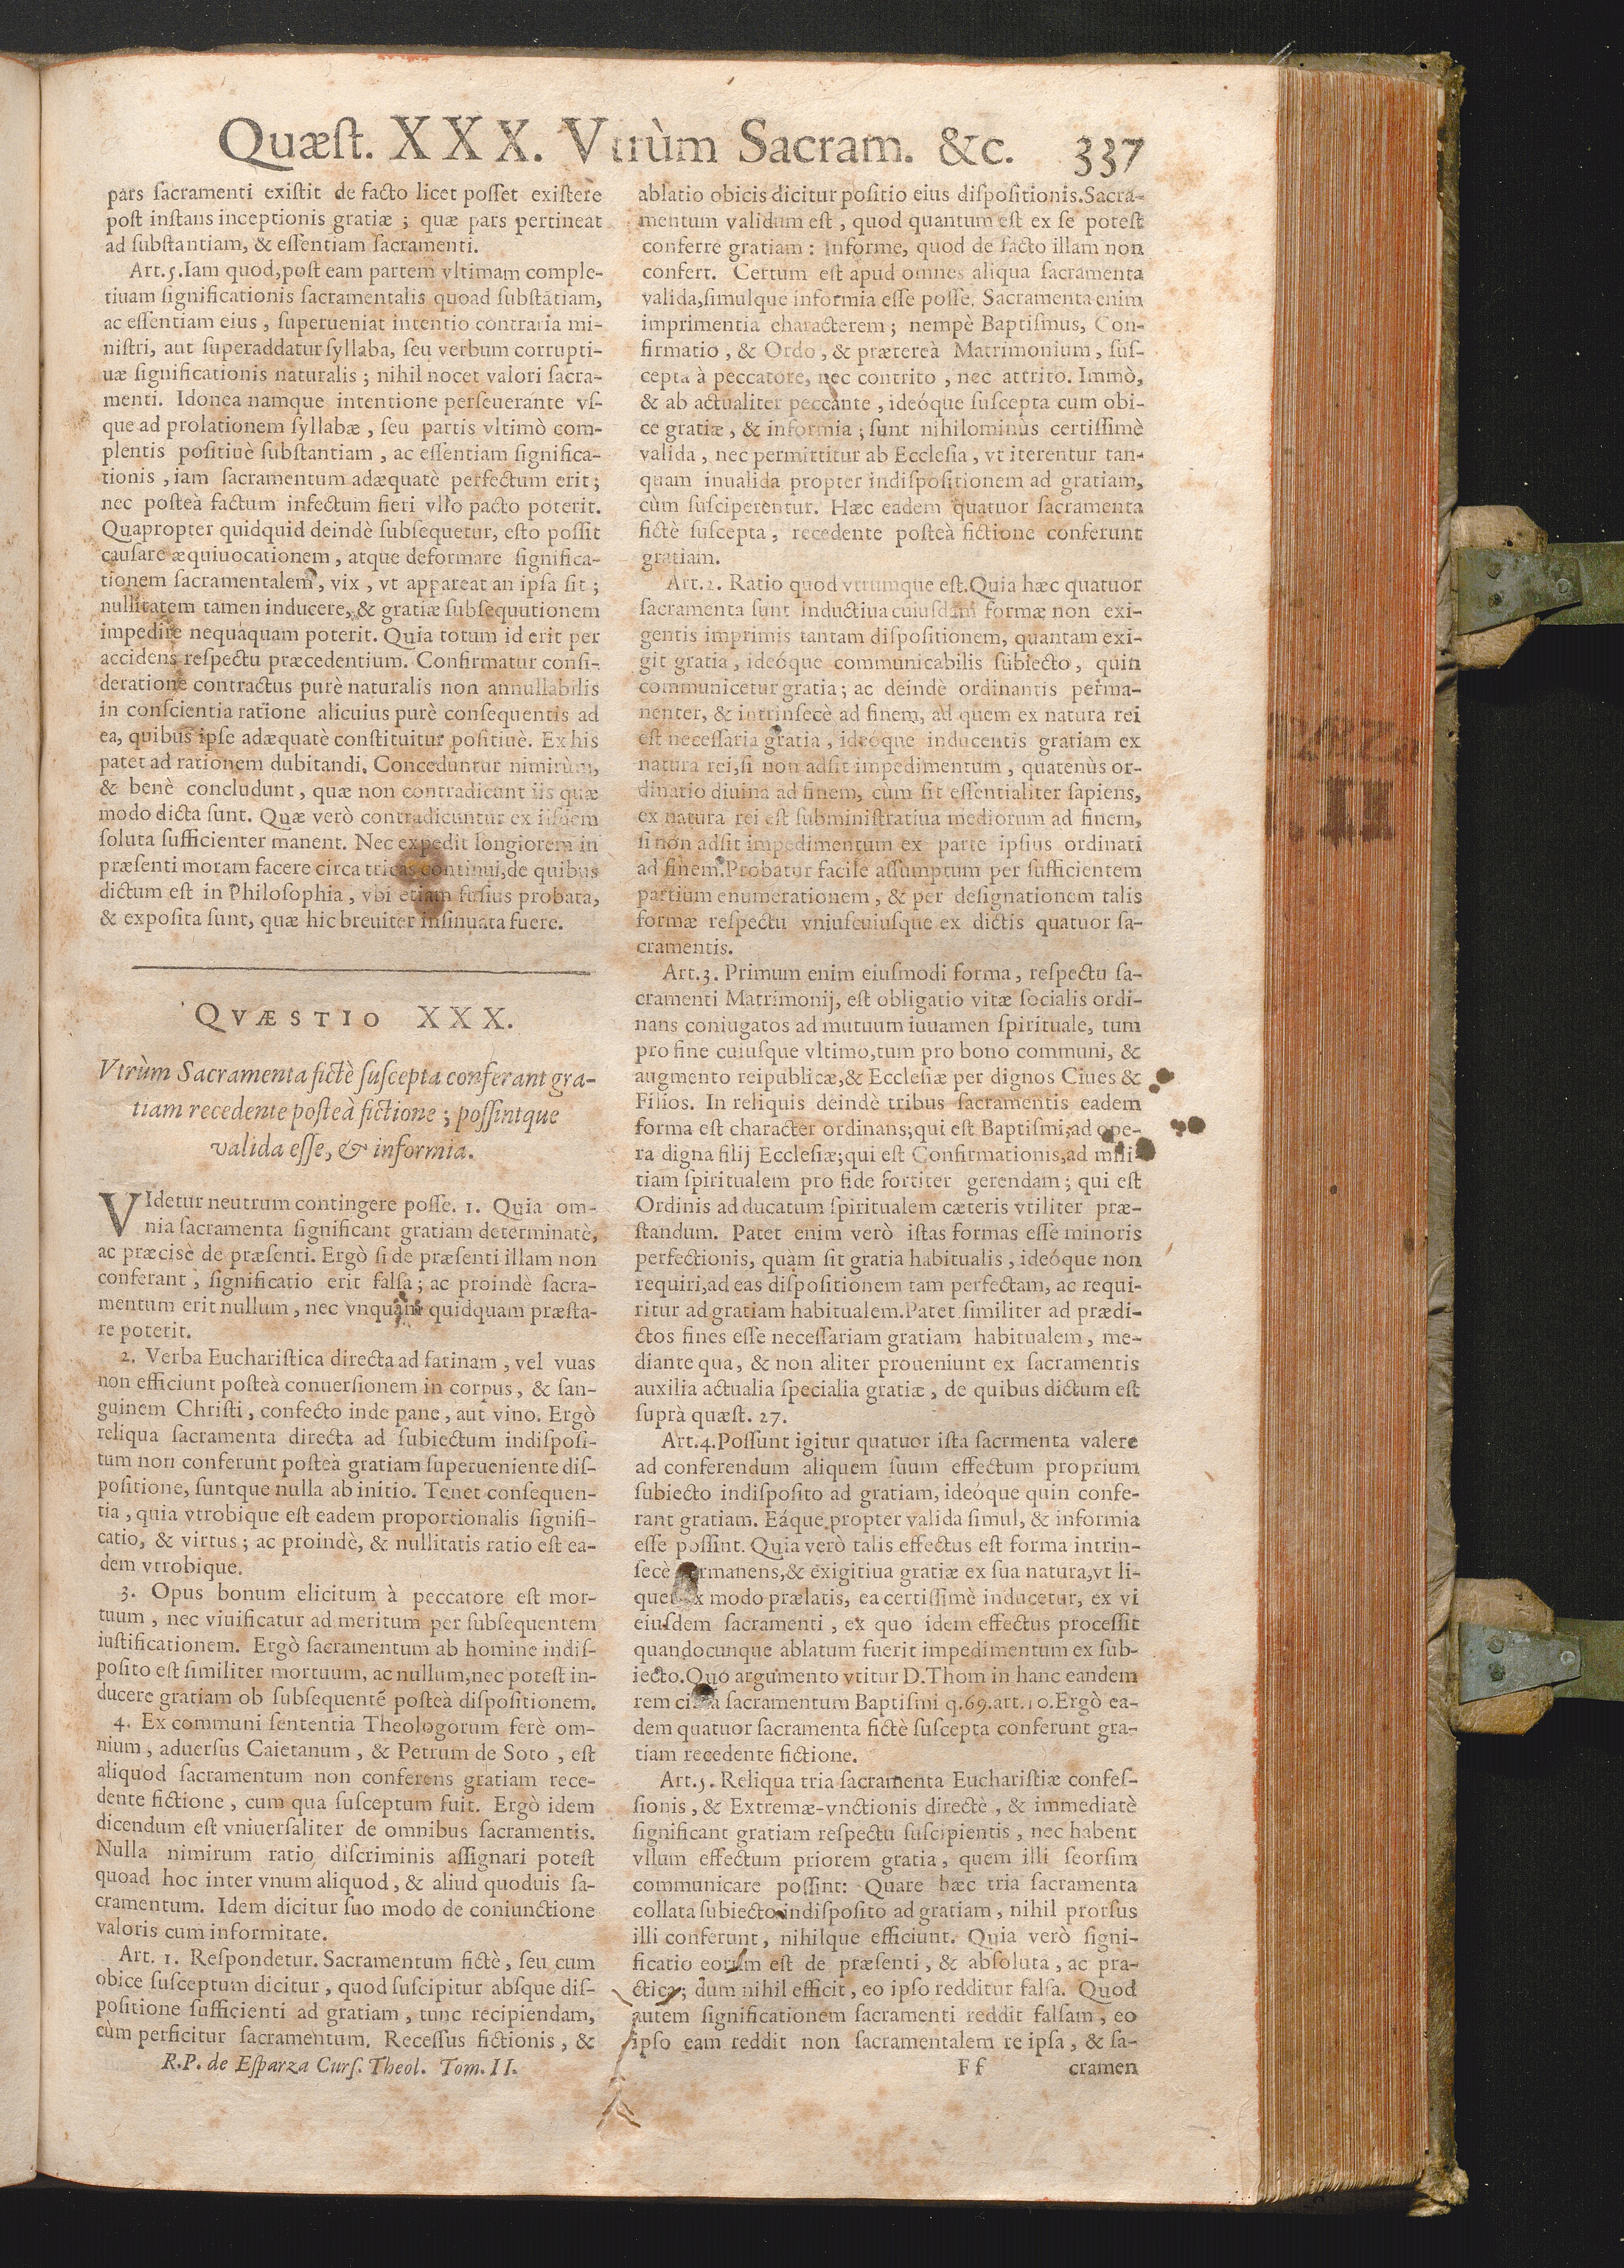 Quæſt. XXX. Vtrùm Sacram. &c. 337
pars ſacramenti exiſtit de facto licet poſſet exiſtere
poſt inſtans inceptionis gratiæ ; quæ pars pertineat
ad ſubſtantiam, & eſſentiam ſacramenti.
Art.5.Iam quod,poſt eam partem vltimam comple-
tiuam ſignificationis ſacramentalis quoad ſubſtãtiam,
ac eſſentiam eius , ſuperueniat intentio contraria mi-
niſtri, aut ſuperaddatur ſyllaba, ſeu verbum corrupti-
uæ ſignificationis naturalis ; nihil nocet valori ſacra-
menti. Idonea namque intentione perſeuerante vſ-
que ad prolationem ſyllabæ , ſeu partis vltimò com-
plentis poſitiuè ſubſtantiam , ac eſſentiam ſignifica-
tionis , iam ſacramentum adæquatè perfectum erit ;
nec poſteà factum infectum fieri vllo pacto poterit.
Quapropter quidquid deindè ſubſequetur, eſto poſſit
cauſare æquiuocationem , atque deformare ſignifica-
tionem ſacramentalem , vix , vt appareat an ipſa ſit ;
nullitatem tamen inducere, & gratiæ ſubſequutionem
impedire nequaquam poterit. Quia totum id erit per
accidens reſpectu præcedentium. Confirmatur conſi-
deratione contractus purè naturalis non annullabilis
in conſcientia ratione alicuius purè conſequentis ad
ea, quibus ipſe adæquatè conſtituitur poſitiuè. Ex his
patet ad rationem dubitandi. Conceduntur nimirùm,
& benè concludunt , quæ non contradicunt iis quæ
modo dicta ſunt. Quæ verò contradicuntur ex iiſdem
ſoluta ſufficienter manent. Nec expedit longiorem in
præſenti moram facere circa tricas continui,de quibus
dictum eſt in Philoſophia , vbi etiam fuſius probata,
& expoſita ſunt, quæ hic breuiter inſinuata fuere.
QVÆSTIO XXX.
Vtrùm Sacramenta fictè ſuſcepta conferant gra-
tiam recedente poſteà fictione ; poſſintque
valida eſſe, & informia.
VIdetur neutrum contingere poſſe. 1. Quia om-
nia ſacramenta ſignificant gratiam determinatè,
ac præcisè de præſenti. Ergò ſi de præſenti illam non
conferant , ſignificatio erit falſa ; ac proindè ſacra-
mentum erit nullum , nec vnquam quidquam præſta-
re poterit.
2. Verba Euchariſtica directa ad farinam , vel vuas
non efficiunt poſteà conuerſionem in corpus , & ſan-
guinem Chriſti , confecto inde pane , aut vino. Ergò
reliqua ſacramenta directa ad ſubiectum indiſpoſi-
tum non conferunt poſteà gratiam ſuperueniente diſ-
poſitione, ſuntque nulla ab initio. Tenet conſequen-
tia , quia vtrobique eſt eadem proportionalis ſignifi-
catio, & virtus ; ac proindè, & nullitatis ratio eſt ea-
dem vtrobique.
3. Opus bonum elicitum à peccatore eſt mor-
tuum , nec viuificatur ad meritum per ſubſequentem
iuſtificationem. Ergò ſacramentum ab homine indiſ-
poſito eſt ſimiliter mortuum, ac nullum,nec poteſt in-
ducere gratiam ob ſubſequentẽ poſteà diſpoſitionem.
4. Ex communi ſententia Theologorum ferè om-
nium , aduerſus Caietanum , & Petrum de Soto , eſt
aliquod ſacramentum non conferens gratiam rece-
dente fictione , cum qua ſuſceptum fuit. Ergò idem
dicendum eſt vniuerſaliter de omnibus ſacramentis.
Nulla nimirum ratio diſcriminis aſſignari poteſt
quoad hoc inter vnum aliquod , & aliud quoduis ſa-
cramentum. Idem dicitur ſuo modo de coniunctione
valoris cum informitate.
Art. 1. Reſpondetur. Sacramentum fictè , ſeu cum
obice ſuſceptum dicitur , quod ſuſcipitur abſque diſ-
poſitione ſufficienti ad gratiam , tunc recipiendam,
cùm perficitur ſacramentum. Receſſus fictionis , &
R.P. de Eſparza Curſ. Theol. Tom. II.
ablatio obicis dicitur poſitio eius diſpoſitionis.Sacra-
mentum validum eſt , quod quantum eſt ex ſe poteſt
conferre gratiam : Informe, quod de facto illam non
confert. Certum eſt apud omnes aliqua ſacramenta
valida,ſimulque informia eſſe poſſe. Sacramenta enim
imprimentia characterem ; nempè Baptiſmus, Con-
firmatio , & Ordo , & prætereà Matrimonium , ſuſ-
cepta à peccatore, nec contrito , nec attrito. Immò,
& ab actualiter peccante , ideóque ſuſcepta cum obi-
ce gratiæ , & informia ; ſunt nihilominùs certiſſimè
valida , nec permittitur ab Eccleſia , vt iterentur tan-
quam inualida propter indiſpoſitionem ad gratiam,
cùm ſuſciperentur. Hæc eadem quatuor ſacramenta
fictè ſuſcepta , recedente poſteà fictione conferunt
gratiam.
Art.2. Ratio quod vtrumque eſt.Quia hæc quatuor
ſacramenta ſunt inductiua cuiuſdam formæ non exi-
gentis imprimis tantam diſpoſitionem, quantam exi-
git gratia , ideóque communicabilis ſubiecto , quin
communicetur gratia ; ac deindè ordinantis perma-
nenter, & intrinſecè ad finem, ad quem ex natura rei
eſt neceſſaria gratia , ideóque inducentis gratiam ex
natura rei,ſi non adſit impedimentum , quatenùs or-
dinatio diuina ad finem, cùm ſit eſſentialiter ſapiens,
ex natura rei eſt ſubminiſtratiua mediorum ad finem,
ſi non adſit impedimentum ex parte ipſius ordinati
ad finem.Probatur facile aſſumptum per ſufficientem
partium enumerationem , & per deſignationem talis
formæ reſpectu vniuſcuiuſque ex dictis quatuor ſa-
cramentis.
Art.3. Primum enim eiuſmodi forma , reſpectu ſa-
cramenti Matrimonij, eſt obligatio vitæ ſocialis ordi-
nans coniugatos ad mutuum iuuamen ſpirituale, tum
pro fine cuiuſque vltimo,tum pro bono communi, &
augmento reipublicæ,& Eccleſiæ per dignos Ciues &
Filios. In reliquis deindè tribus ſacramentis eadem
forma eſt character ordinans;qui eſt Baptiſmi,ad ope-
ra digna filij Eccleſiæ;qui eſt Confirmationis,ad mili-
tiam ſpiritualem pro fide fortiter gerendam ; qui eſt
Ordinis ad ducatum ſpiritualem cæteris vtiliter præ-
ſtandum. Patet enim verò iſtas formas eſſe minoris
perfectionis, quàm ſit gratia habitualis , ideóque non
requiri,ad eas diſpoſitionem tam perfectam, ac requi-
ritur ad gratiam habitualem.Patet ſimiliter ad prædi-
ctos fines eſſe neceſſariam gratiam habitualem , me-
diante qua , & non aliter proueniunt ex ſacramentis
auxilia actualia ſpecialia gratiæ , de quibus dictum eſt
ſuprà quæſt. 27.
Art.4.Poſſunt igitur quatuor iſta ſacrmenta valere
ad conferendum aliquem ſuum effectum proprium
ſubiecto indiſpoſito ad gratiam, ideóque quin confe-
rant gratiam. Eáque propter valida ſimul, & informia
eſſe poſſint. Quia verò talis effectus eſt forma intrin-
ſecè permanens,& exigitiua gratiæ ex ſua natura,vt li-
quet ex modo prælatis, ea certiſſimè inducetur, ex vi
eiuſdem ſacramenti , ex quo idem effectus proceſſit
quandocunque ablatum fuerit impedimentum ex ſub-
iecto.Quo argumento vtitur D.Thom in hanc eandem
rem circa ſacramentum Baptiſmi q.69.art.10.Ergò ea-
dem quatuor ſacramenta fictè ſuſcepta conferunt gra-
tiam recedente fictione.
Art.5. Reliqua tria ſacramenta Euchariſtiæ confeſ-
ſionis , & Extremæ-vnctionis directè , & immediatè
ſignificant gratiam reſpectu ſuſcipientis , nec habent
vllum effectum priorem gratia , quem illi ſeorſim
communicare poſſint: Quare hæc tria ſacramenta
collata ſubiecto indiſpoſito ad gratiam , nihil prorſus
illi conferunt , nihilque efficiunt. Quia verò ſigni-
ficatio eorum eſt de præſenti , & abſoluta , ac pra-
ctica ; dum nihil efficit , eo ipſo redditur falſa. Quod
autem ſignificationem ſacramenti reddit falſam , eo
ipſo eam reddit non ſacramentalem re ipſa , & ſa-
F f cramen